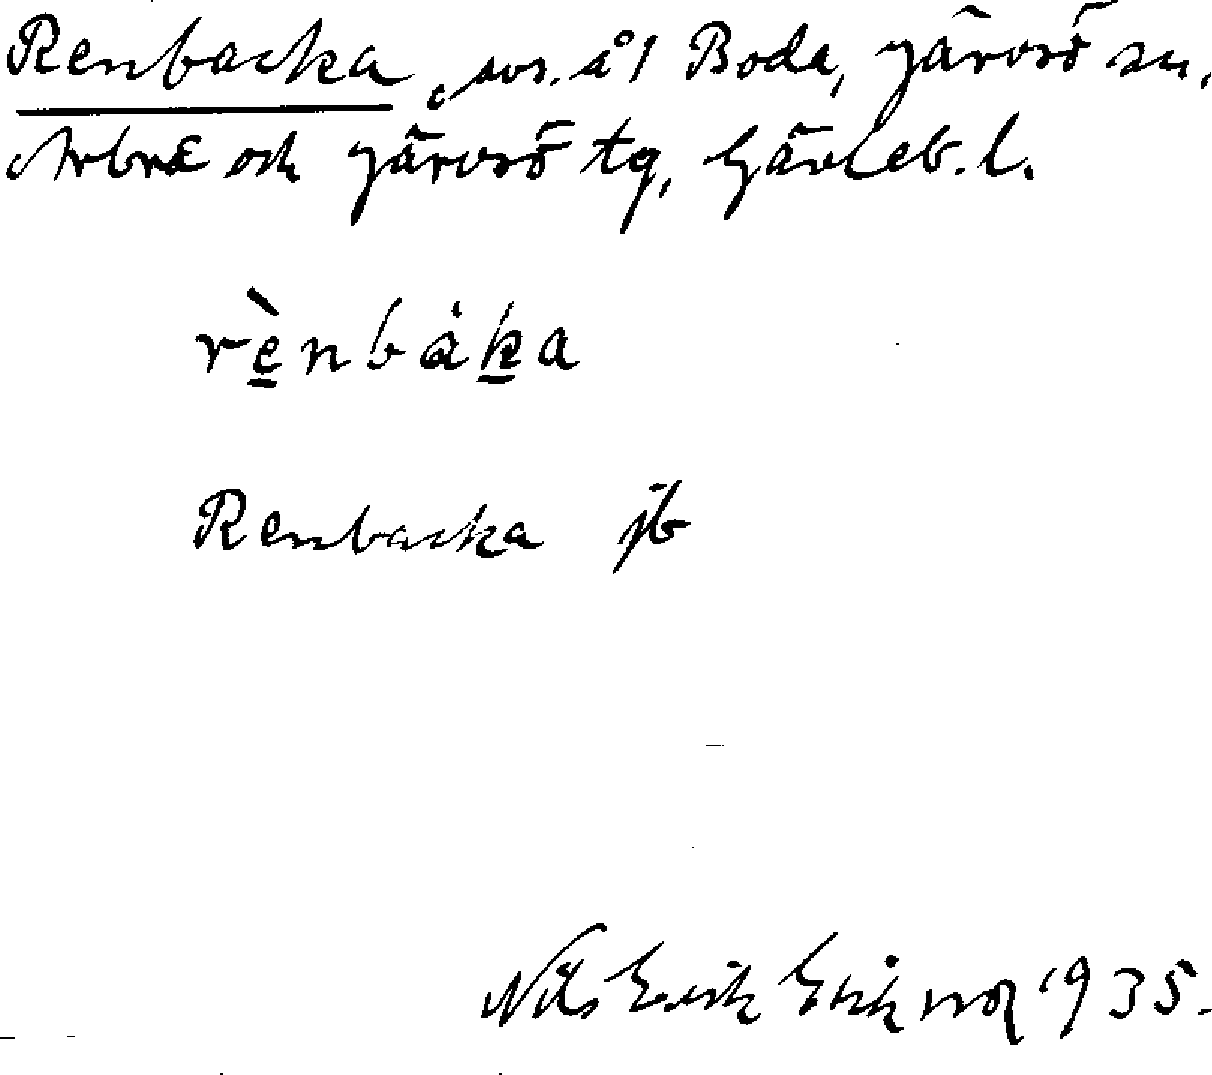 Renbacka, avs. å 1 Boda, Järvsö sn,
Arbrå och Järvsö tg, Gävleb. l.
rènbàka
Renbacka jb
Nils Erik 1935.